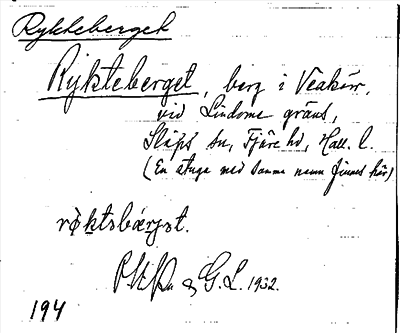 Rykteberget
Rykteberget, berg i Veakärr,
vid Lindome gräns,
Släps sn, Fjäre hd, Hall. l.
(En stuga med samma namn finnes här)
röktsbærjət.
& G. L. 1932.
194